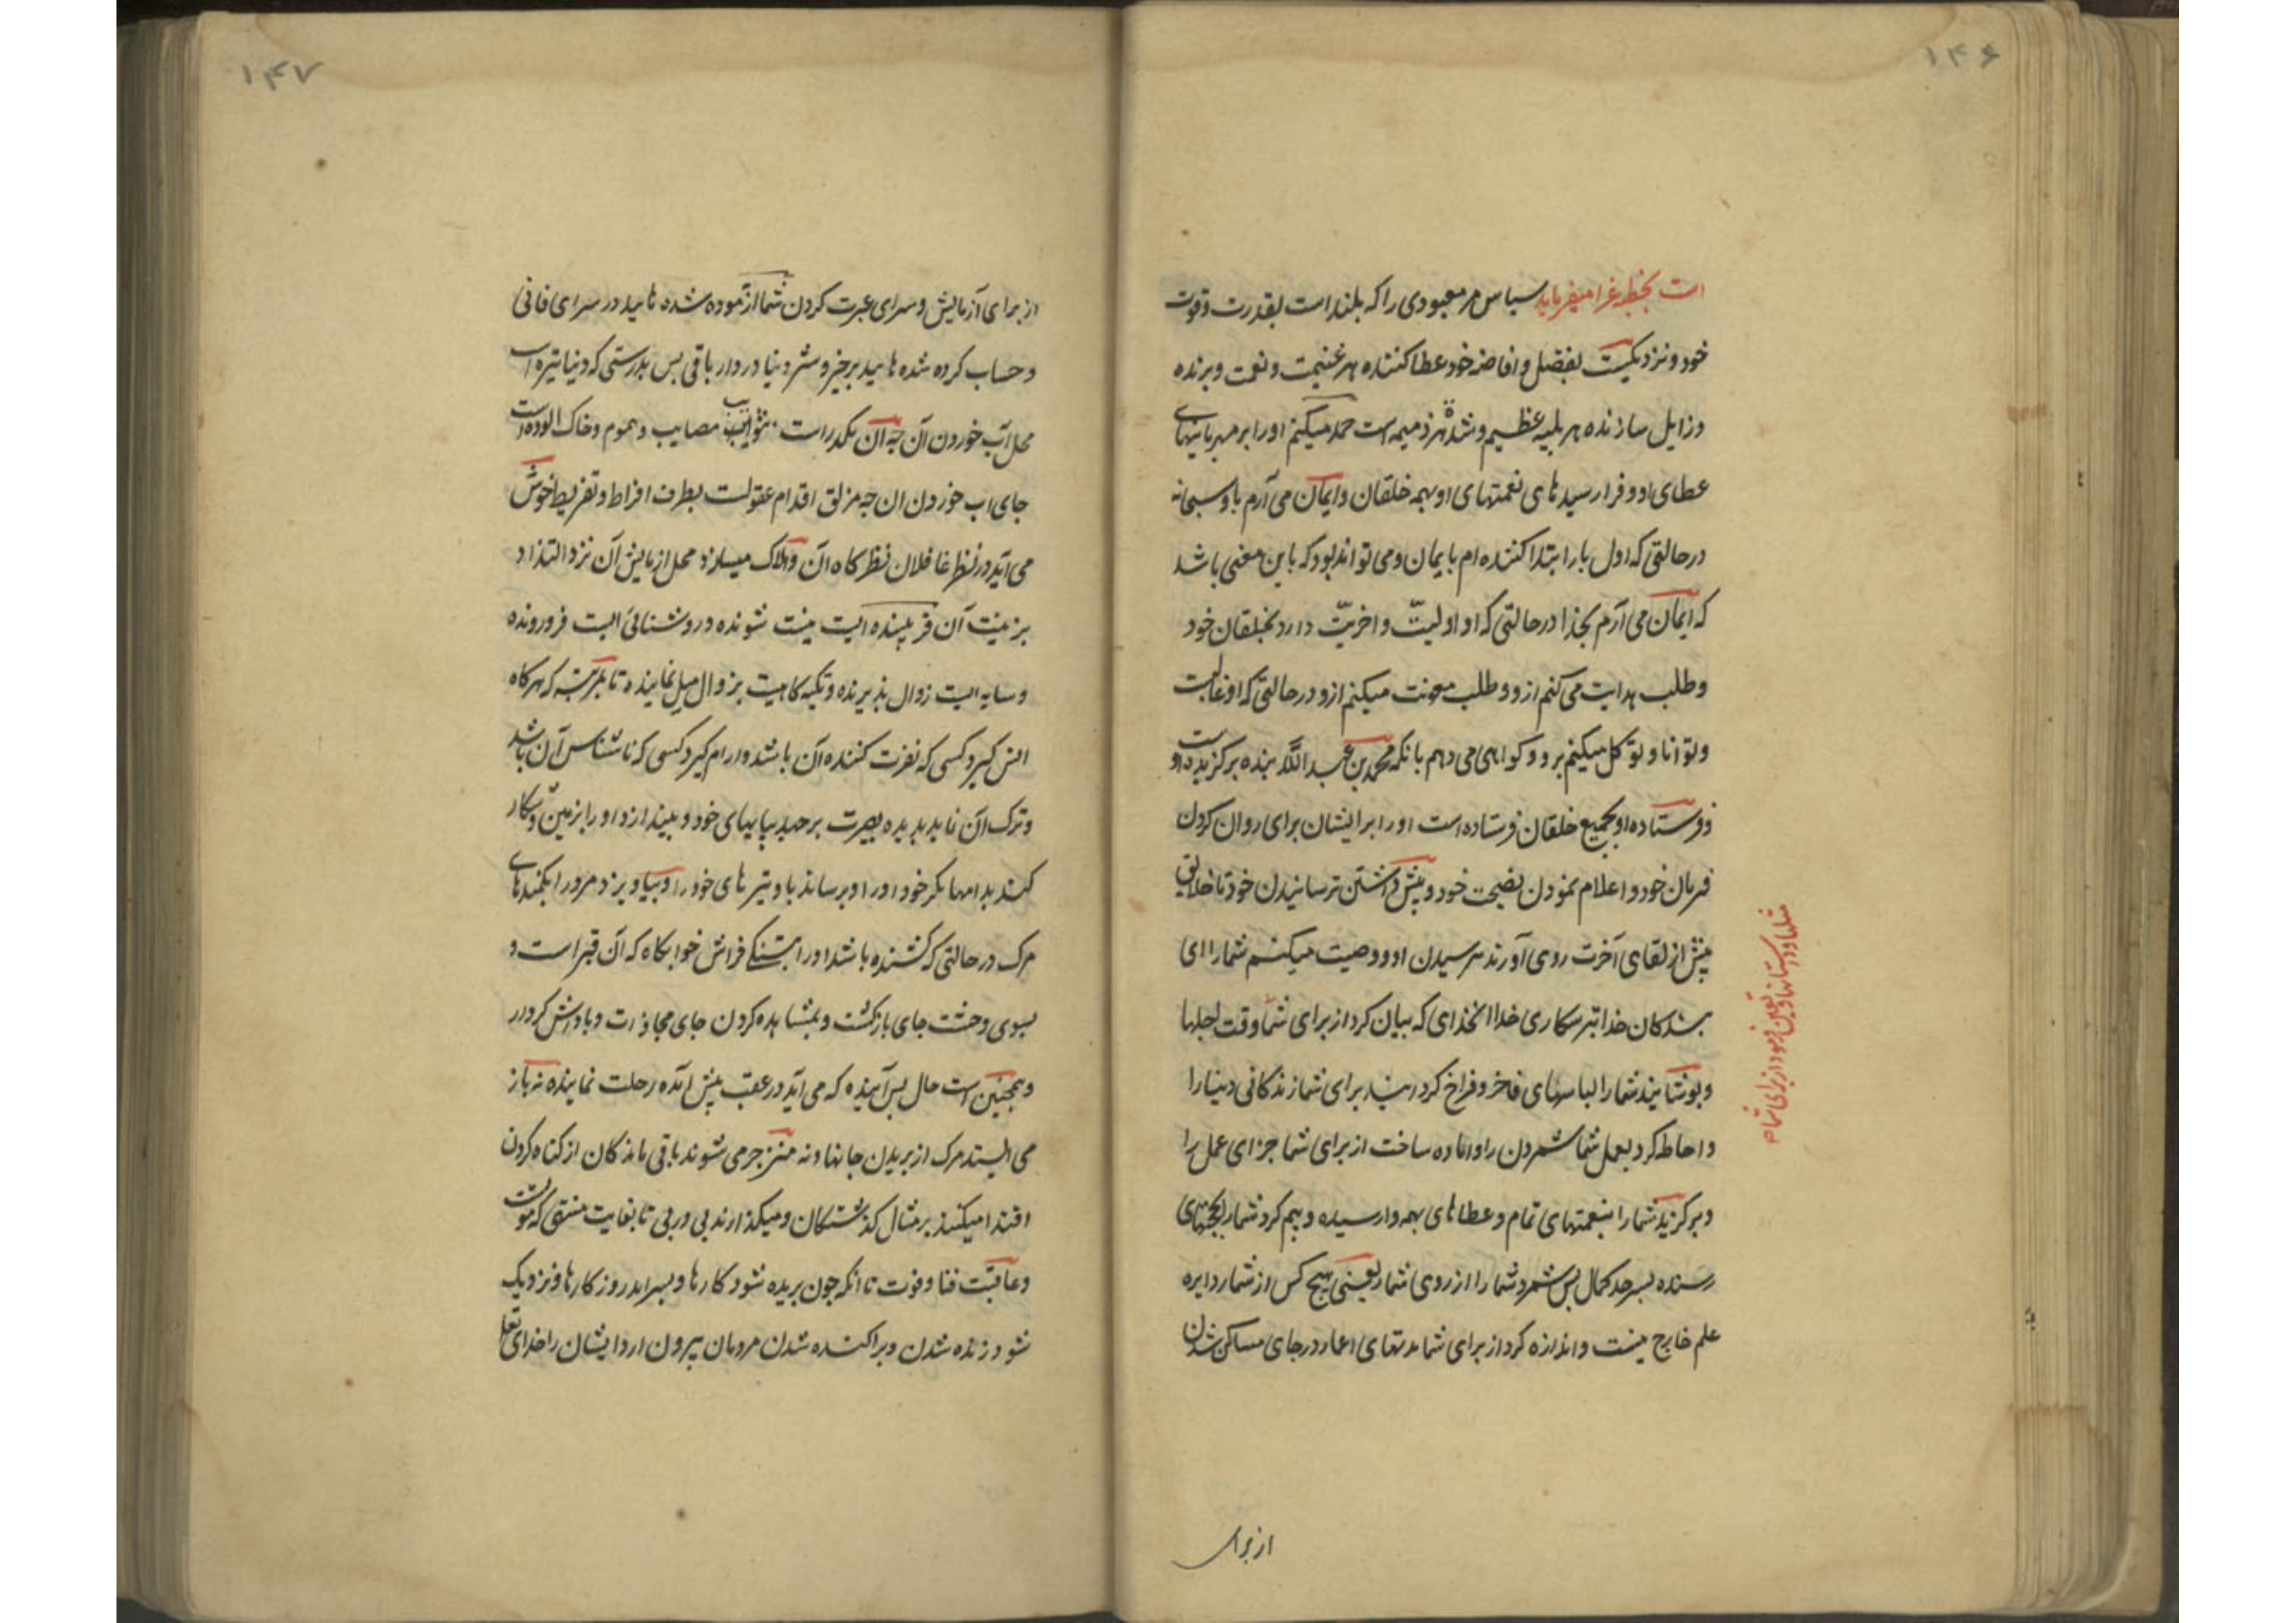 ۱۴۶
است بخطبه غرا میفرماید سپاس مر معبودی را که بلند است بقدرت و قوت
خود و نزدیکیست بفضل و افاضه خود عطا کننده هر غنیمت و نعمت و برنده
و زایل سازنده هر بلیه عظیم و شدة هر ذمیمه است حمد میکنم او را بر مهربانیهای
عطای او و فرا رسیدهای نعمتهای او بهمه خلقان و ایمان می آرم باو سبحانه
در حالتی که اول بار ابتدا کننده ام بایمان و می تواند بود که باین معنی باشد
که ایمان می آرم بخدا در حالتی که او اولیت و اخریت دارد بخلقان خود
و طلب هدایت می کنم ازو و طلب معونت میکنم ازو در حالتی که او غالبست
و توانا و توکل میکنم برو و کواهی می دهم بانکه محمد بن عبد الله بنده برکزیده اوست
و فرستاده او بجمیع خلقان فرستاده است او را بر ایشان برای روان کردن
فرمان خود و اعلام نمودن نصیحت خود و پیش داشتن ترسانیدن خود تا خلایق
پیش از لقای آخرت روی آورند بترسیدن او و وصیت میکنم شما را ای
بندکان خدا بترسکاری خدا انخدای که بیان کرد از برای شما وقت اجلها
و بپوشانید شما را لباسهای فاخر و فراخ کردانید برای شما زندکانی دنیا را
و احاطه کرد بعمل شما شمردن را و اماده ساخت از برای شما جزای عمل را
و برکزید شما را بنعمتهای تمام و عطاهای بهمه وارسیده و بیم کرد شما را بحجتهای
رسنده بسرحد کمال پس شمرد شما را از روی شمار یعنی هیچ کس از شما ر دایره
علم خارج نیست و اندازه کرد از برای شما مدتهای اعمار در جای ساکن شدن
مثلها و داستانها و تعیین فرمود از برای شما
از برای
۱۴۷
از برای آزمایش و سرای عبرت کردن شما ازموده شده هایید در سرای فانی
و حساب کرده شده هایید بر خیر و شر دنیا در دار باقی پس بدرستی که دنیا تیره است
محل آب خوردن آن چه آن مکدر است بشوایب مصایب و هموم و خاک الوده است
جای اب خوردن ان چه مزلق اقدام عقولست بطرف افراط و تفریط خوش
می آید در نظر غافلان نظرکاه آن و هلاک میسازد محل ازمایش آن نزد التذاذ
بزینت آن فریبنده ایست نیست شونده و روشنائی ایست فرورونده
و سایه ایست زوال پذیرنده و تکیه کاهیست بزوال میل نماینده تا بمرتبه که هر کاه
انس کیرد کسی که نفرت کننده آن باشد و ارام کیرد کسی که ناشناس آن باشد
و ترک آن نماید بدیده بصیرت برجهد بپایهای خود و بیندازد او را بزمین و شکار
کند بدامها مکر خود او را و برساند باو تیرهای خود را و بیاویزد مر او را بکمندهای
مرک در حالتی که کشنده باشد او را بتنکی فراش خوابکاه که آن قبر است و
بسوی وحشت جای بازکشت و بمشاهده کردن جای مجازات و پاداش کردار
و همچنین است حال پس آینده که می آید در عقب پیش امده رحلت نماینده نه باز
می ایستد مرک از بریدن جانها و نه منزجر می شوند باقی ماندکان از کناه کردن
اقتدا میکنند بر مثال کذشتکان و میکذارند پی در پی تا بغایت منتهی که موتست
و عاقبت فنا و فوت تا انکه چون بریده شود کارها و بسر اید روزکارها و نزدیک
شود زنده شدن و پراکنده شدن مردمان بیرون ارد ایشان را خدای تعالی